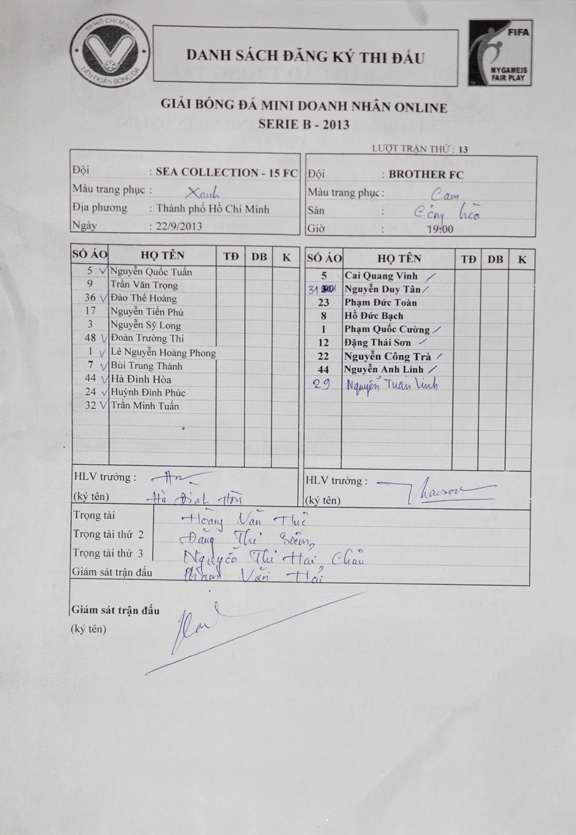 TP HỒ CHÍ MINH
LIÊN ĐOÀN BÓNG ĐÁ
DANH SÁCH ĐĂNG KÝ THI ĐẤU
FIFA
MY GAME IS
FAIR PLAY
GIẢI BÓNG ĐÁ MINI DOANH NHÂN ONLINE
SERIE B - 2013
LƯỢT TRẬN THỨ : 13
Đội : SEA COLLECTION - 15 FC
Màu trang phục : Xanh
Địa phương : Thành phố Hồ Chí Minh
Ngày : 22/9/2013
Đội : BROTHER FC
Màu trang phục : Cam
Sân :
Giờ 19:00
SỐ ÁO HỌ TÊN TĐ DB K
5 Nguyễn Quốc Tuấn
9 Trần Văn Trọng
36 Đào Thế Hoàng
17 Nguyễn Tiến Phú
3 Nguyễn Sỹ Long
48 Đoàn Trường Thi
1 Lê Nguyễn Hoàng Phong
7 Bùi Trung Thành
44 Hà Đình Hòa
24 Huỳnh Đình Phúc
32 Trần Minh Tuấn
SỐ ÁO HỌ TÊN TĐ DB K
5 Cai Quang Vinh
Nguyễn Duy Tân
23 Phạm Đức Toàn
8 Hồ Đức Bạch
1 Phạm Quốc Cường
12 Đặng Thái Sơn
22 Nguyễn Công Trà
44 Nguyễn Anh Linh
29 Nguyễn Tuấn Linh
HLV trưởng :
(ký tên) Hà Đình Hòa
HLV trưởng :
(ký tên)
Trọng tài Hoàng Văn
Trọng tài thứ 2 Đặng Thị
Trọng tài thứ 3 Nguyễn Thị Hải Châu
Giám sát trận đấu Phạm Văn Hải
Giám sát trận đấu
(ký tên)